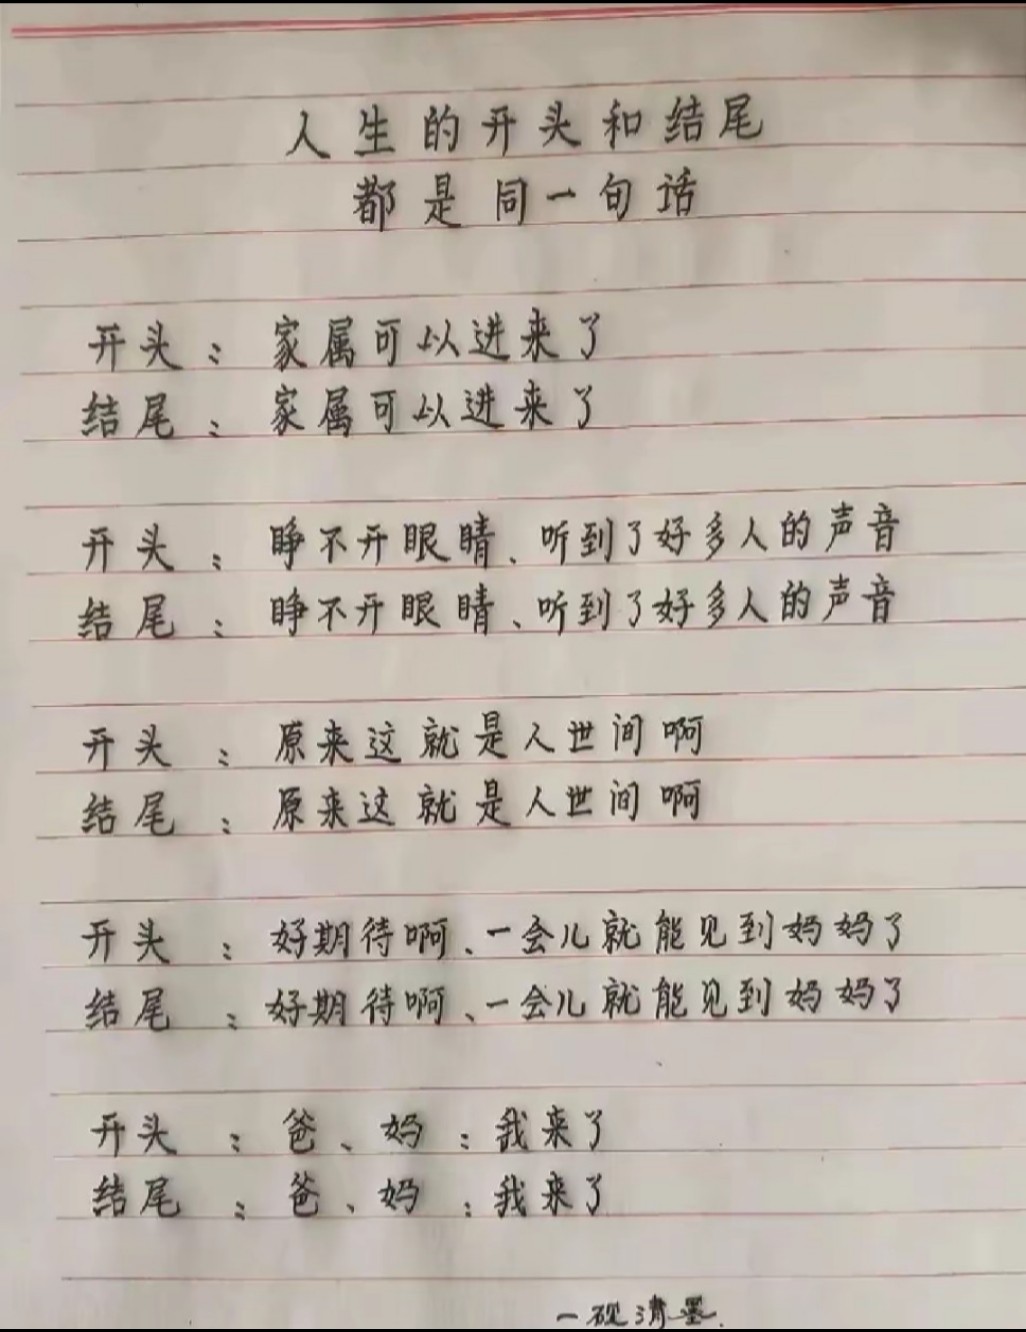 人生的开头和结尾
都是同一句话
开头：家属可以进来了
结尾：家属可以进来了
开头：睁不开眼睛、听到了好多人的声音
结尾：睁不开眼睛、听到了好多人的声音
开头：原来这就是人世间啊
结尾：原来这就是人世间啊
开头：好期待啊、一会儿就能见到妈妈了
结尾：好期待啊、一会儿就能见到妈妈了
开头：爸、妈：我来了
结尾：爸、妈：我来了
一砚清墨.